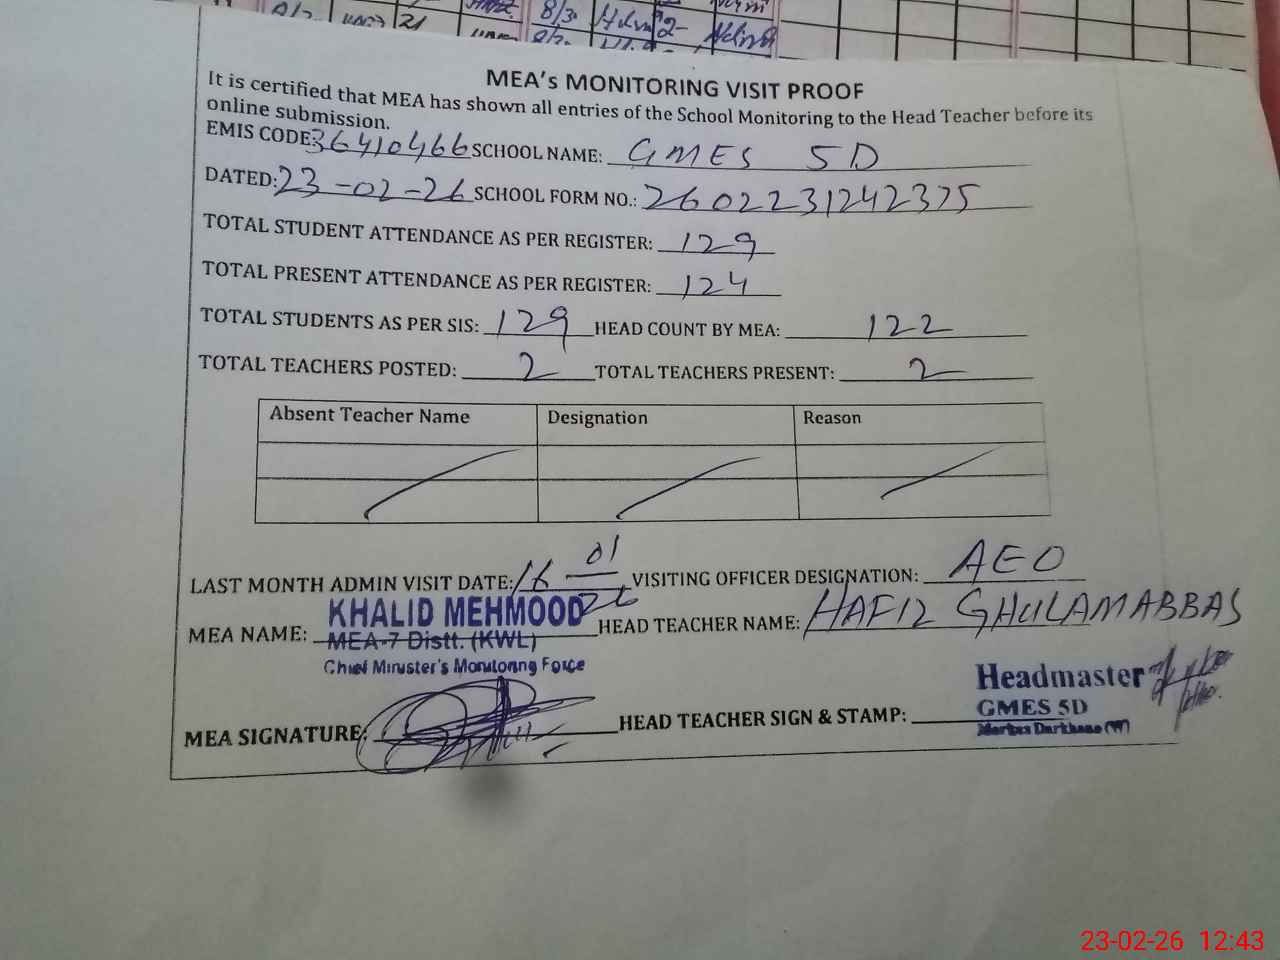 8/3
21
MEA's MONITORING VISIT PROOF
It is certified that MEA has shown all entries of the School Monitoring to the Head Teacher before its
online submission.
EMIS CODE: 36410466 SCHOOL NAME: GMES 5D
DATED: 23-02-26 SCHOOL FORM NO.: 2602231242375
TOTAL STUDENT ATTENDANCE AS PER REGISTER: 129
TOTAL PRESENT ATTENDANCE AS PER REGISTER: 124
TOTAL STUDENTS AS PER SIS: 129 HEAD COUNT BY MEA: 122
TOTAL TEACHERS POSTED: 2 TOTAL TEACHERS PRESENT: 2
Absent Teacher Name Designation Reason
LAST MONTH ADMIN VISIT DATE: 16-01-26 VISITING OFFICER DESIGNATION: AEO
MEA NAME: KHALID MEHMOOD HEAD TEACHER NAME: HAFIZ GHULAM ABBAS
MEA-7 Distt. (KWL)
Chief Minister's Monitoring Force
MEA SIGNATURE: HEAD TEACHER SIGN & STAMP: Headmaster
GMES 5D
Markaz Darkhana (W)
23-02-26 12:43